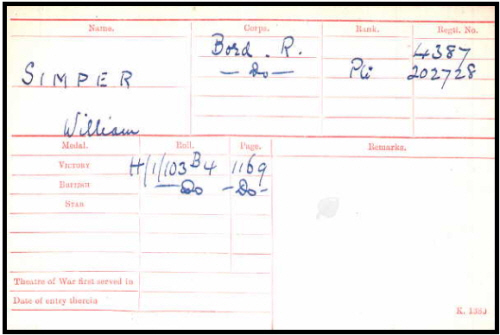 Name. Corps. Rank. Regtl. No.
Bord. R. 4387
SIMPER — Do — Pte 202728
William
Medal. Roll. Page. Remarks.
VICTORY H/1/103B4 1169
BRITISH — Do - Do -
STAR
Theatre of War first served in
Date of entry therein
K. 1380